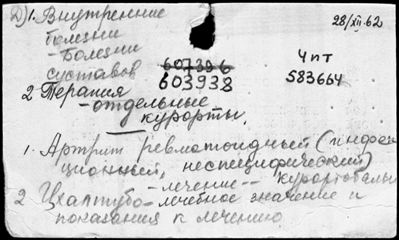 Д) 1. Внутренние
болезни
- Болезни
суставов
28/XII.62
607396
603938
Чпт
583664
2 Терапия
- отдельные
курорты.
1. Артрит ревматоидный (инфек
ционный, неспецифический)
- лечение -- курортальн
2 Цхалтубо - лечебное значение и
показания к лечению